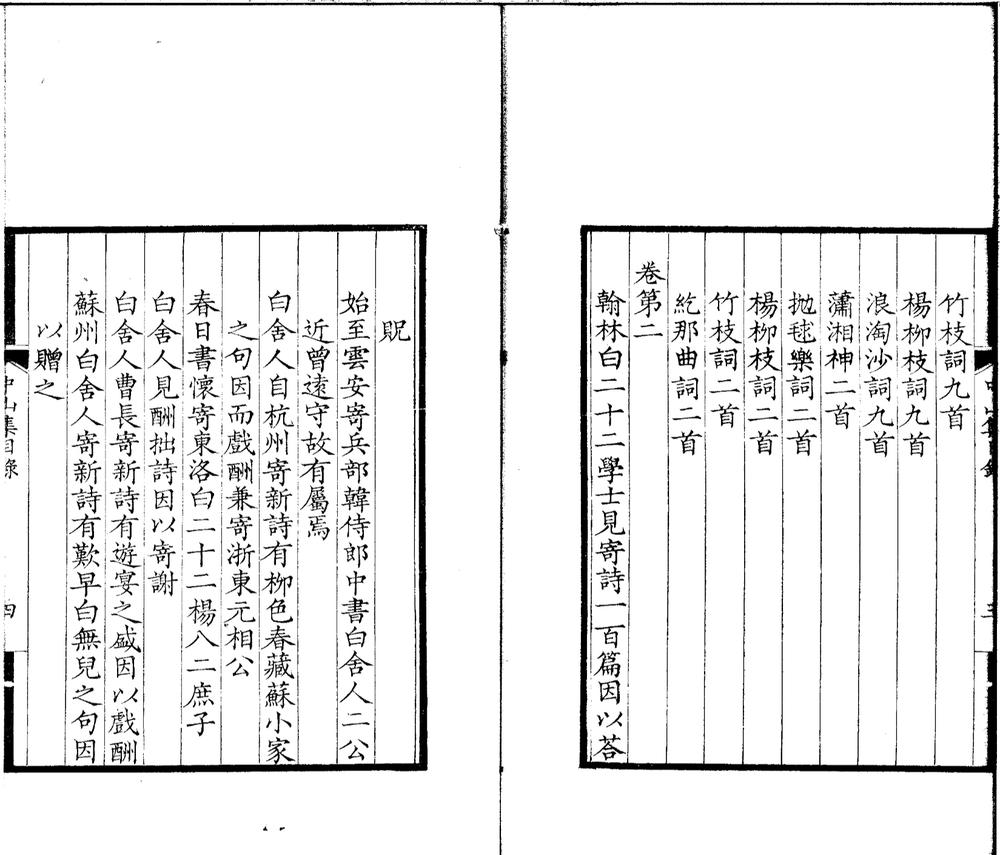 竹枝詞九首
楊柳枝詞九首
浪淘沙詞九首
瀟湘神二首
抛毬樂詞二首
楊柳枝詞二首
竹枝詞二首
紇那曲詞二首
卷第二
翰林白二十二學士見寄詩一百篇因以荅
貺
始至雲安寄兵部韓侍郎中書白舍人二公
近曾遠守故有屬焉
白舍人自杭州寄新詩有柳色春藏蘇小家
之句因而戲酬兼寄浙東元相公
春日書懷寄東洛白二十二楊八二庶子
白舍人見酬拙詩因以寄謝
白舍人曹長寄新詩有遊宴之盛因以戲酬
蘇州白舍人寄新詩有歎早白無兒之句因
以贈之
中山集目錄
四